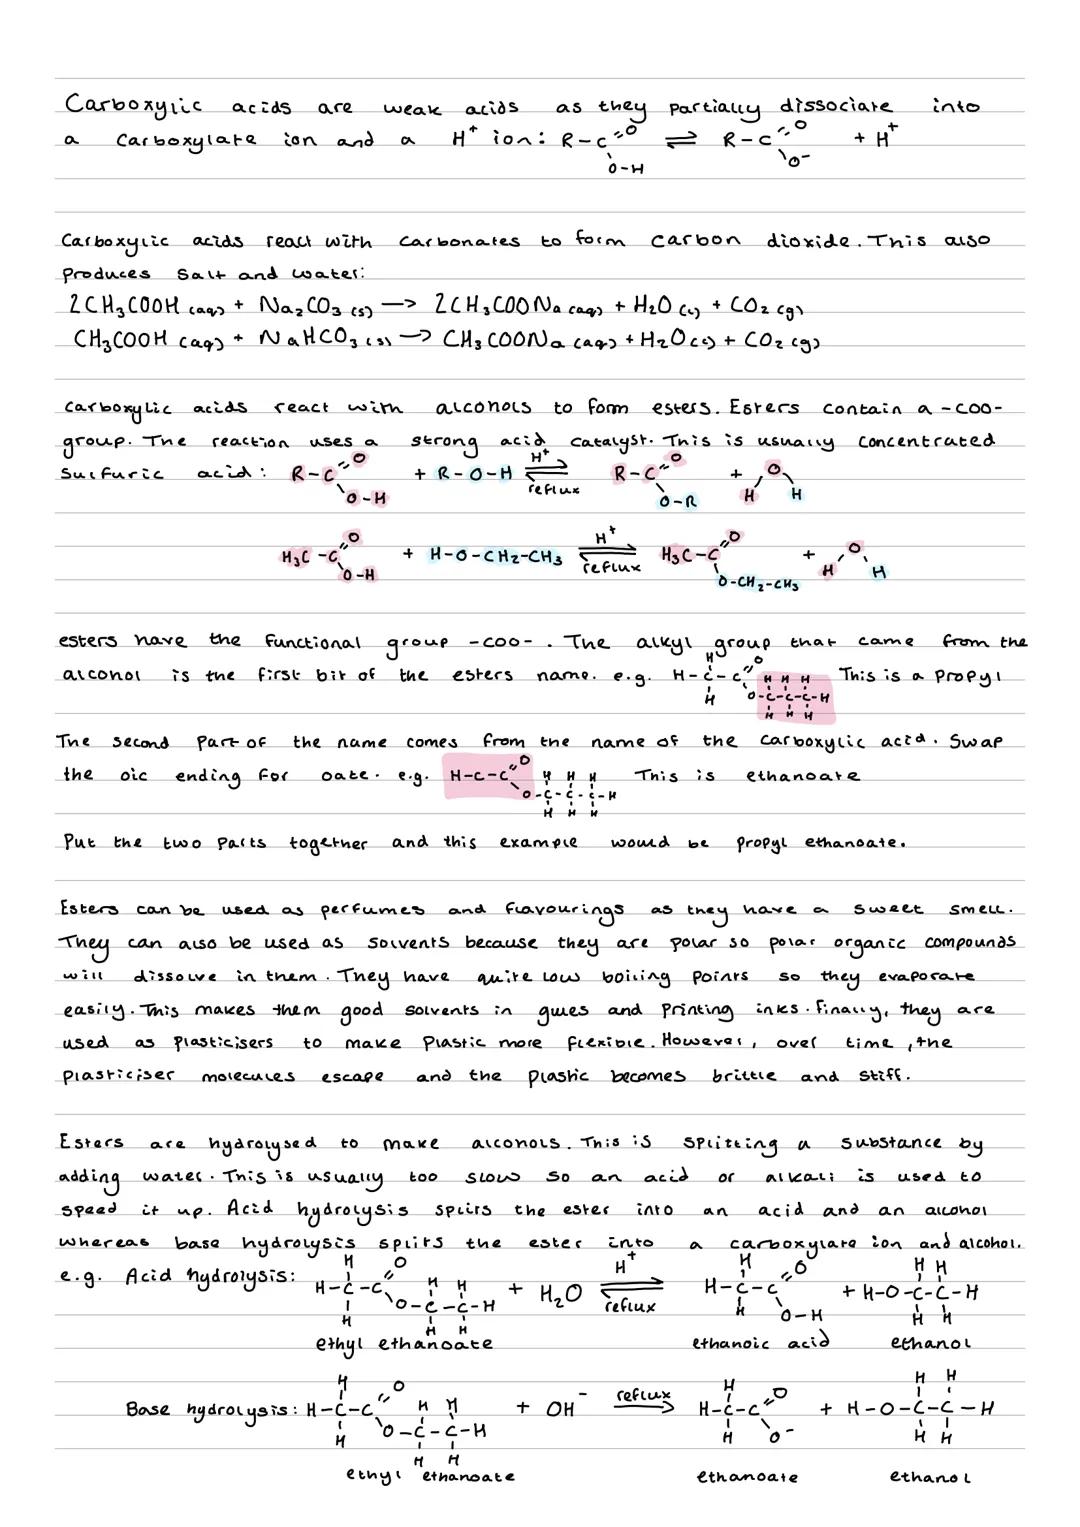 Carboxylic acids are weak acids as they partially dissociate into
a carboxylate ion and a H⁺ ion: R-C=O O-H ⇌ R-C=O O⁻ + H⁺
Carboxylic acids react with carbonates to form carbon dioxide. This also
produces salt and water:
2CH₃COOH (aq) + Na₂CO₃ (s) → 2CH₃COONa (aq) + H₂O (l) + CO₂ (g)
CH₃COOH (aq) + NaHCO₃ (s) → CH₃COONa (aq) + H₂O (l) + CO₂ (g)
carboxylic acids react with alcohols to form esters. Esters contain a -COO-
group. The reaction uses a strong acid catalyst. This is usually concentrated
sulfuric acid: R-C=O O-H + R-O-H ⇌ H⁺ reflux R-C=O O-R + H O H
H₃C-C=O O-H + H-O-CH₂-CH₃ ⇌ H⁺ reflux H₃C-C=O O-CH₂-CH₃ + H O H
esters have the functional group -COO-. The alkyl group that came from the
alcohol is the first bit of the esters name. e.g. H-C-C=O H H O-C-C-C-H H H H H H H This is a propyl
The second part of the name comes from the name of the carboxylic acid. Swap
the oic ending for oate. e.g. H-C-C=O O-C-C-C-H H H H H H H This is ethanoate
Put the two parts together and this example would be propyl ethanoate.
Esters can be used as perfumes and flavourings as they have a sweet smell.
They can also be used as solvents because they are polar so polar organic compounds
will dissolve in them. They have quite low boiling points so they evaporate
easily. This makes them good solvents in glues and printing inks. Finally, they are
used as plasticisers to make plastic more flexible. However, over time, the
plasticiser molecules escape and the plastic becomes brittle and stiff.
Esters are hydrolysed to make alcohols. This is splitting a substance by
adding water. This is usually too slow so an acid or alkali is used to
speed it up. Acid hydrolysis splits the ester into an acid and an alcohol
whereas base hydrolysis splits the ester into a carboxylate ion and alcohol.
e.g. Acid hydrolysis: H-C-C=O H H O-C-C-H H H H H + H₂O ⇌ H⁺ reflux H-C-C=O H H O-H + H-O-C-C-H H H H H
ethyl ethanoate ethanoic acid ethanol
Base hydrolysis: H-C-C=O H H O-C-C-H H H H H + OH⁻ → reflux H-C-C=O H H O⁻ + H-O-C-C-H H H H H
ethyl ethanoate ethanoate ethanol